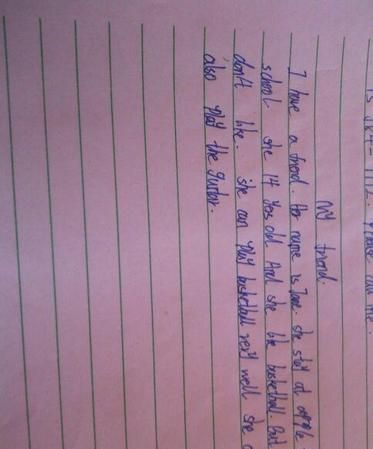 is 7K4- 112. Please call me.
My friend.
I have a friend. Her name is Jane. she stay at
school she 14 Yes old. And she like basketball. But
don't like. she can play basketball very well she c
also play the guitar.